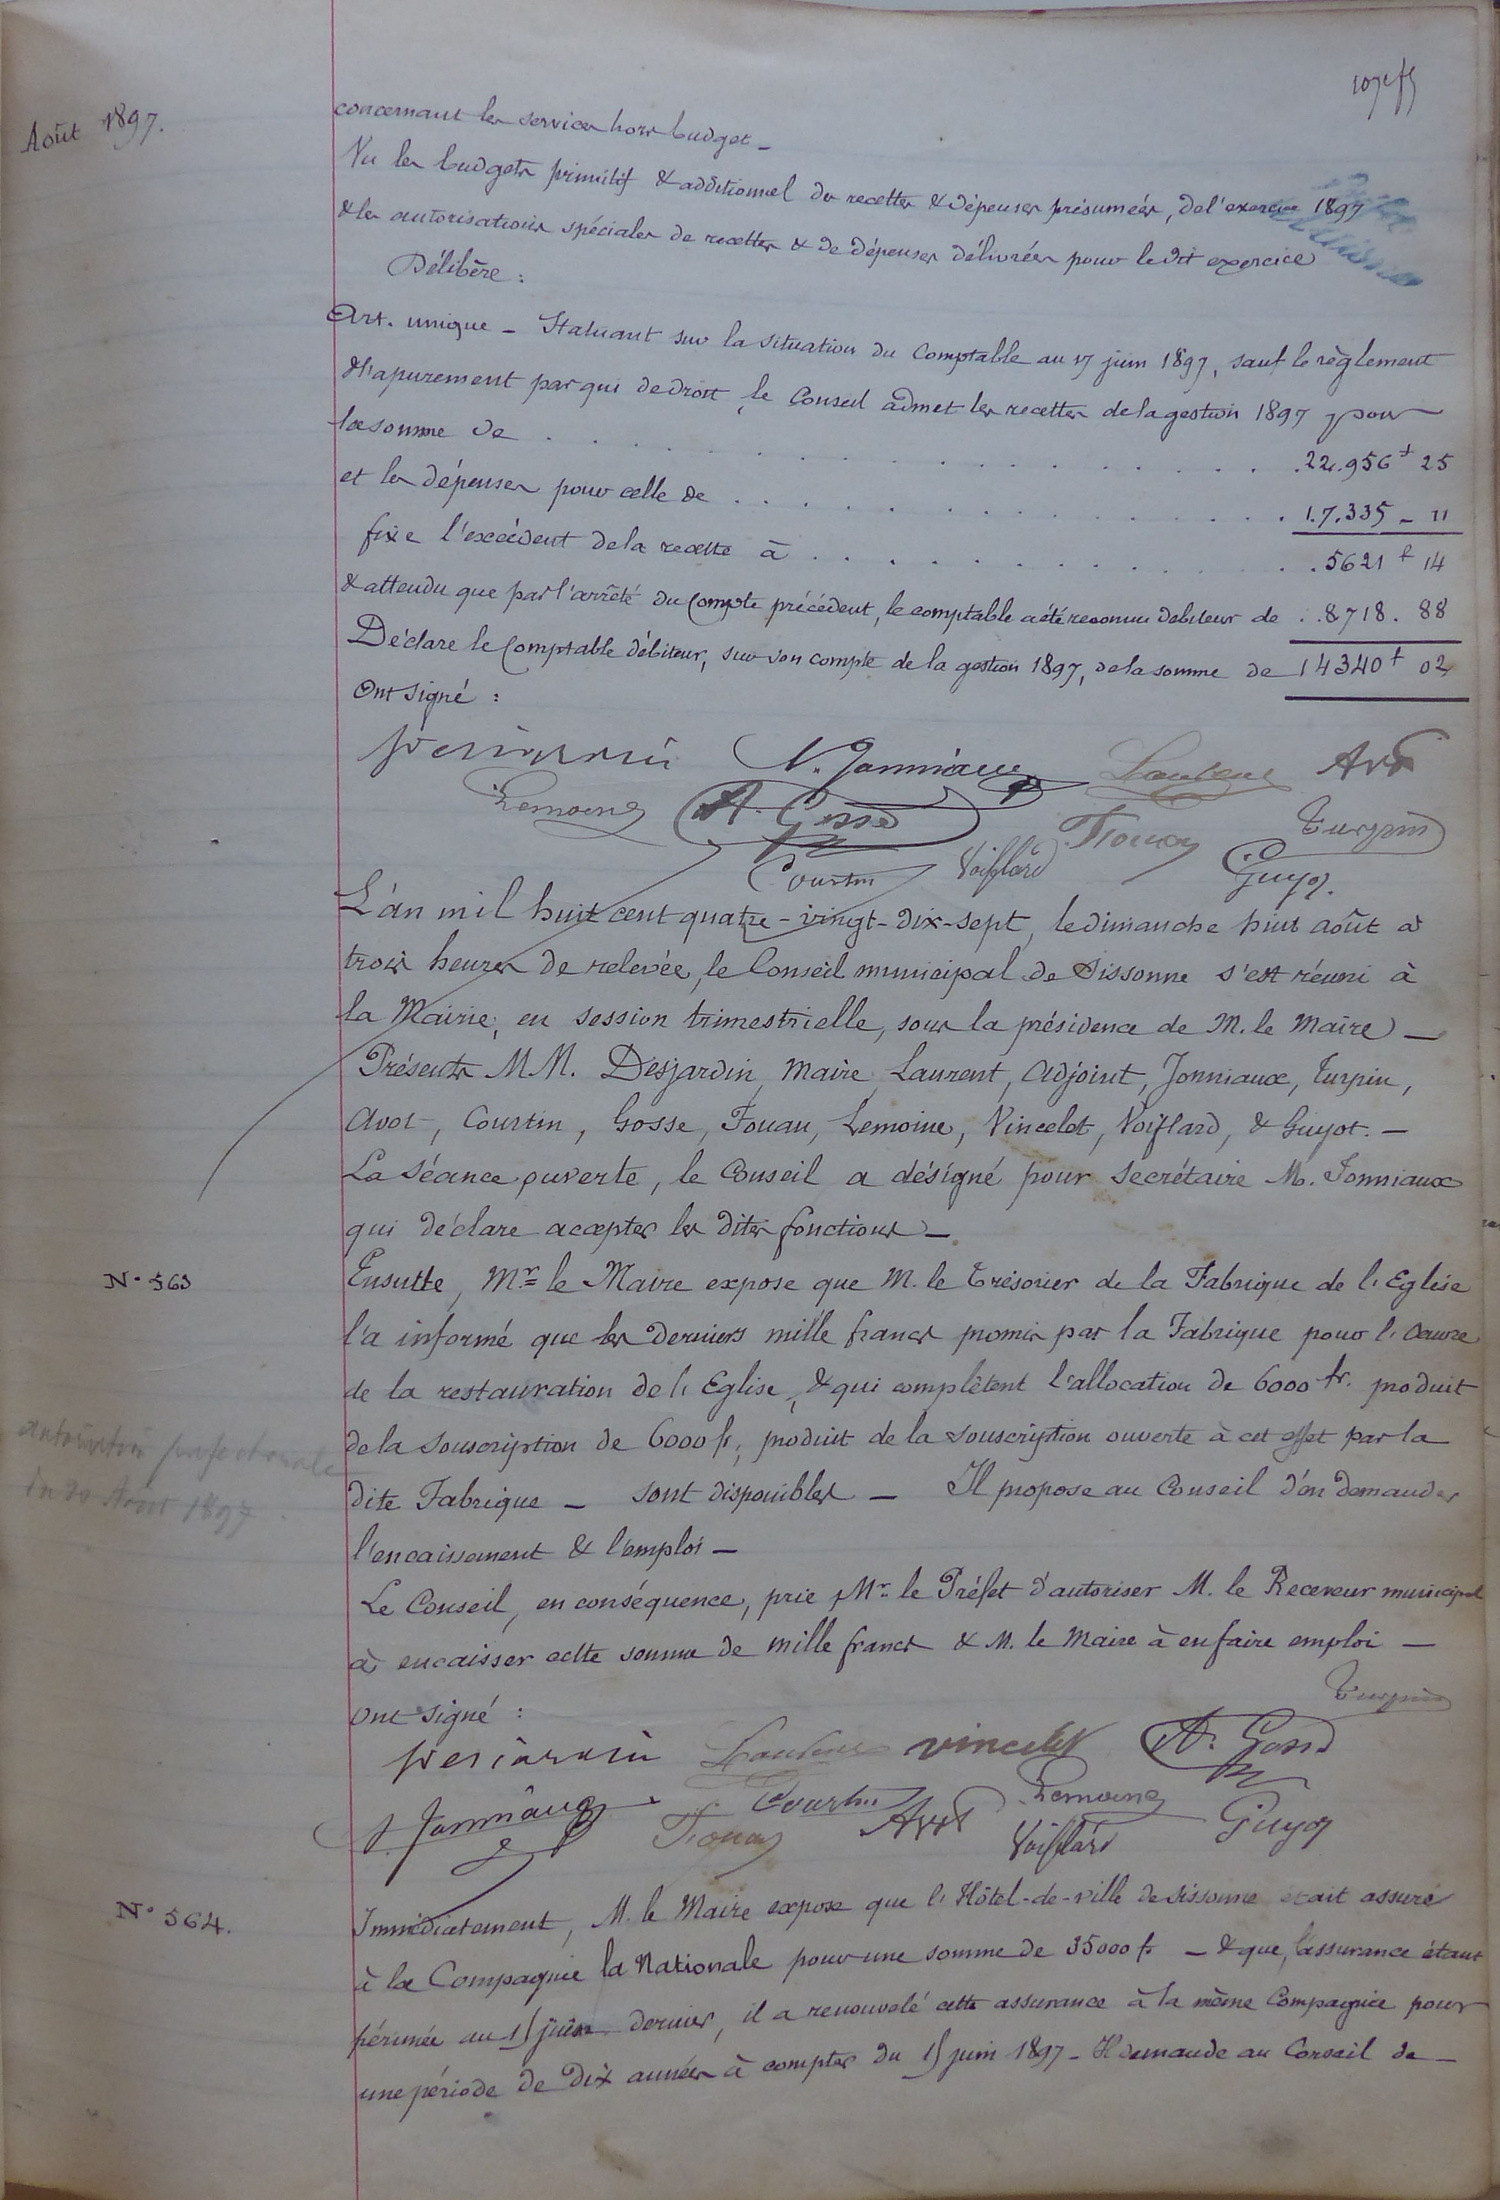 Août 1897.
concernant les services hors budget _
Vu les budgets primitif & additionnel de recettes & dépenses présumées, de l'exercice 1897
& les autorisations spéciales de recettes & de dépenses délivrées pour le dit exercice
Délibère :
Art. unique _ Statuant sur la situation du Comptable au 17 juin 1897, sauf le règlement
& l'apurement par qui de droit, le Conseil admet les recettes de la gestion 1897 pour
la somme de . . . . . 22.956 f 25
et les dépenses pour celle de . . . . . 17.335 _ 11
fixe l'excédent de la recette à . . . . . 5621 f 14
& attendu que par l'arrêté du Compte précédent, le comptable a été reconnu débiteur de . . 8718 . 88
Déclare le Comptable débiteur, sur son compte de la gestion 1897, de la somme de 14340 f 02
Ont signé :
Desjardin N. Jonniaux Laurent Avot
Lemoine A. Gosse Fouan Turpin
Courtin Voiflard Guyot.
L'an mil huit cent quatre-vingt-dix-sept, le dimanche huit août à
trois heures de relevée, le Conseil municipal de Sissonne s'est réuni à
la Mairie, en session trimestrielle, sous la présidence de M. le Maire _
Présents MM. Desjardin, Maire, Laurent, Adjoint, Jonniaux, Turpin,
Avot, Courtin, Gosse, Fouan, Lemoine, Vincelot, Voiflard, & Guyot. _
La Séance ouverte, le Conseil a désigné pour Secrétaire M. Jonniaux
qui déclare accepter les dites fonctions _
N° 563
Ensuite, Mr le Maire expose que M. le Trésorier de la Fabrique de l'Eglise
l'a informé que les derniers mille francs promis par la Fabrique pour l'Oeuvre
de la restauration de l'Eglise, & qui complètent l'allocation de 6000 fr. produit
de la souscription de 6000 f, produit de la souscription ouverte à cet effet par la
autorisation préfectorale
du 20 Août 1897.
dite Fabrique _ sont disponibles _ Il propose au Conseil d'en demander
l'encaissement & l'emploi _
Le Conseil, en conséquence, prie Mr le Préfet d'autoriser M. le Receveur municipal
à encaisser cette somme de mille francs & M. le Maire à en faire emploi _
Ont signé : Turpin
Desjardin Laurent Vincelot A. Gosse
N. Jonniaux Courtin Lemoine
Fouan Avot Voiflard Guyot
N° 564.
Immédiatement, M. le Maire expose que l'Hôtel-de-ville de Sissonne était assuré
à la Compagnie la Nationale pour une somme de 35000 f _ & que, l'assurance étant
périmée au 15 juin dernier, il a renouvelé cette assurance à la même Compagnie pour
une période de Dix années à compter du 15 juin 1897 _ Il demande au Conseil de _